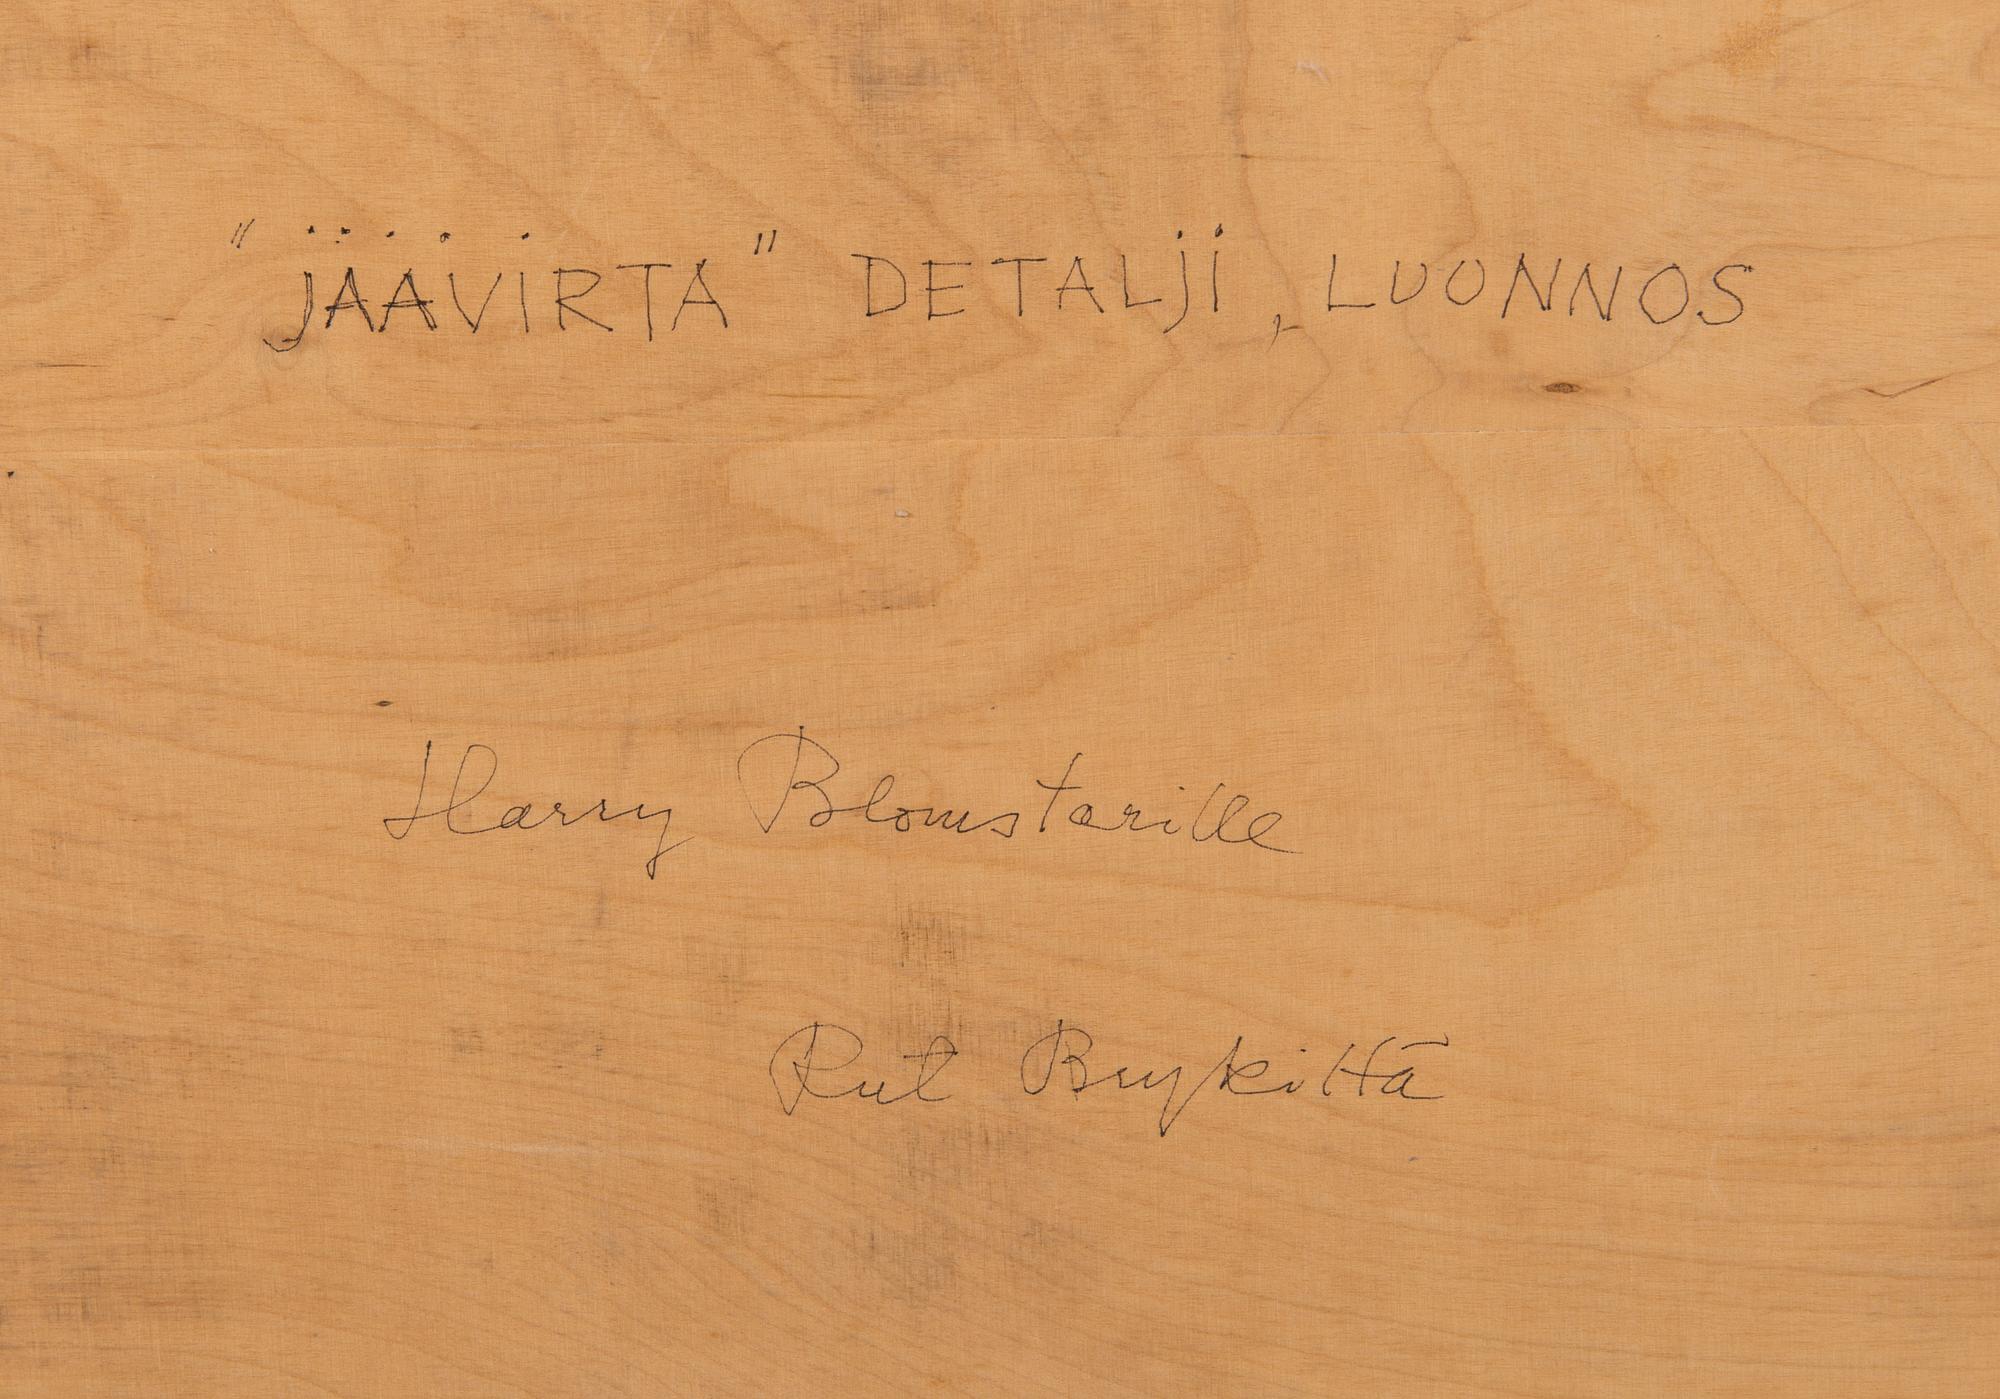 "JÄÄVIRTA" DETALJI, LUONNOS
Harry Blomstarille
Rut Brykiltä